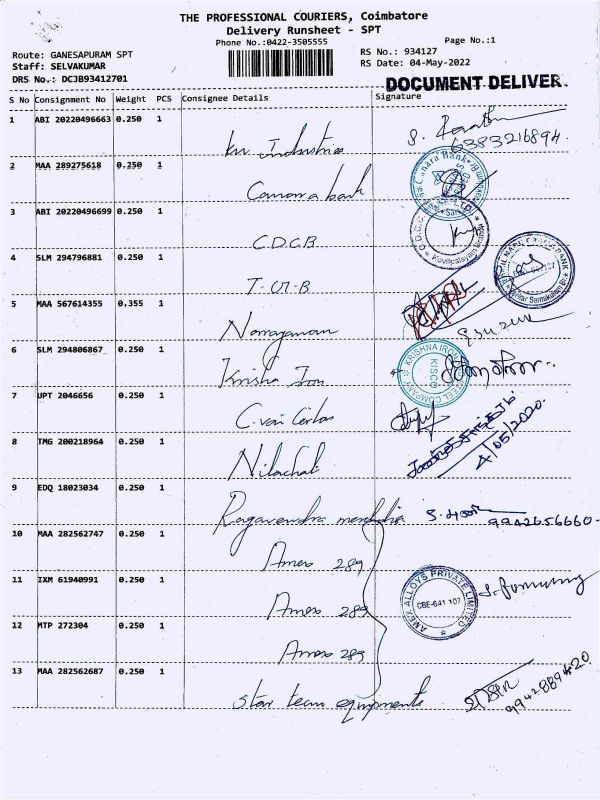 THE PROFESSIONAL COURIERS, Coimbatore
Delivery Runsheet - SPT
Phone No.:0422-3505555
Page No.:1
Route: GANESAPURAM SPT
RS No.: 934127
Staff: SELVAKUMAR
RS Date: 04-May-2022
DRS No.: DCJB93412701
DOCUMENT DELIVER
S No Consignment No Weight PCS Consignee Details Signature
1 ABI 20220496663 0.250 1
6383216894.
2 MAA 289275618 0.250 1
Canara bank
3 ABI 20220496699 0.250 1
C.D.C.B
4 SLM 294796881 0.250 1
5 MAA 567614355 0.355 1
6 SLM 294806867 0.250 1
KRISHNA IRON STEEL COMPANY
KISCO
7 UPT 2046656 0.250 1
8 TMG 200218964 0.250 1
Nilachal
4/05/2020.
9 EDQ 18023034 0.250 1
9942656660-
10 MAA 282562747 0.250 1
Amex 289
11 IXM 61940991 0.250 1
Amex 289
AMEX ALLOYS PRIVATE LIMITED
CBE-641 107
12 MTP 272304 0.250 1
Amex 289
13 MAA 282562687 0.250 1
Star team equipments
9942889420